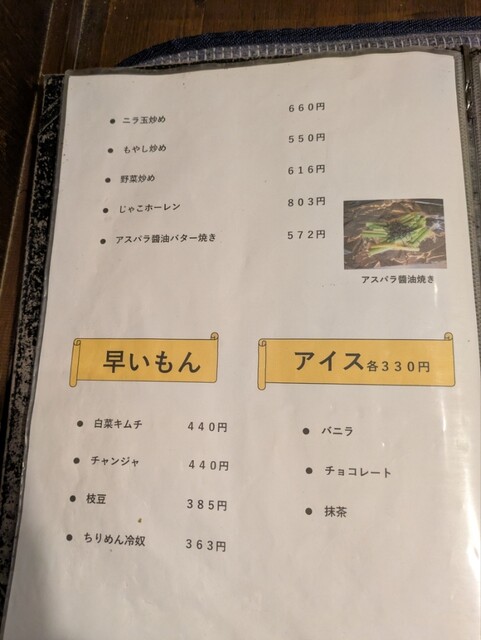 ● ニラ玉炒め 660円
● もやし炒め 550円
● 野菜炒め 616円
● じゃこホーレン 803円
● アスパラ醤油バター焼き 572円
アスパラ醤油焼き
早いもん
● 白菜キムチ 440円
● チャンジャ 440円
● 枝豆 385円
● ちりめん冷奴 363円
アイス各330円
● バニラ
● チョコレート
● 抹茶